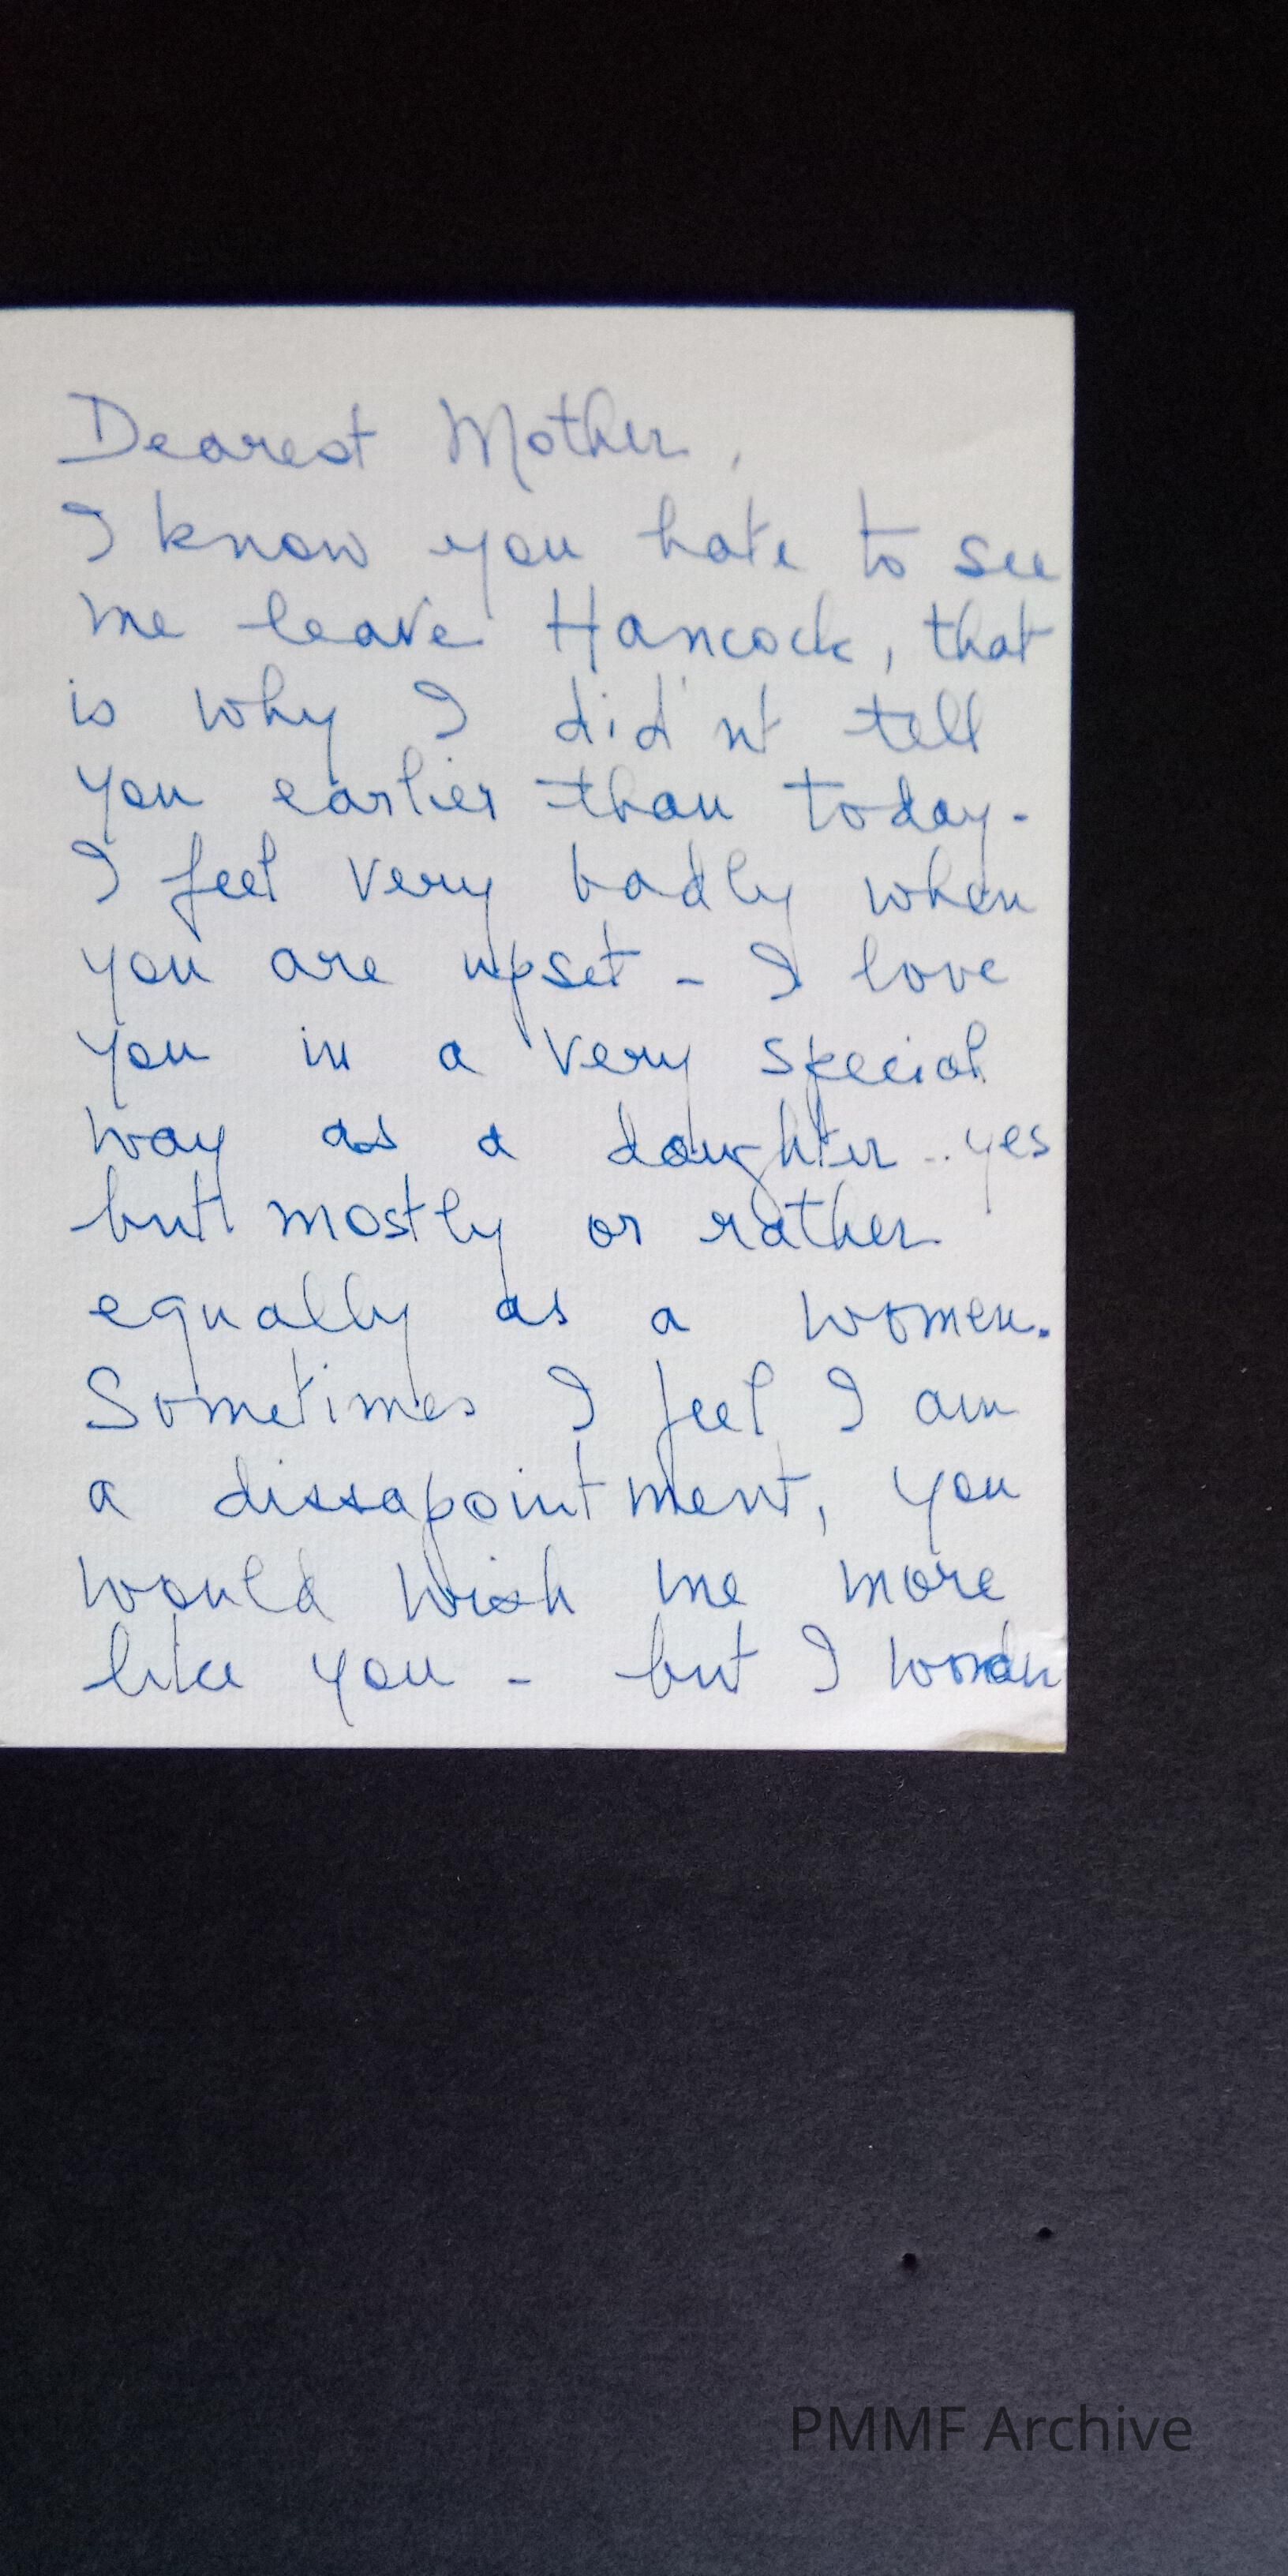 Dearest Mother,
I know you hate to see
me leave Hancock, that
is why I did'nt tell
you earlier than today.
I feel very badly when
you are upset - I love
you in a very special
way as a daughter .. yes
but mostly or rather
equally as a women.
Sometimes I feel I am
a dissapointment, you
would wish me more
like you - but I wonder
PMMF Archive